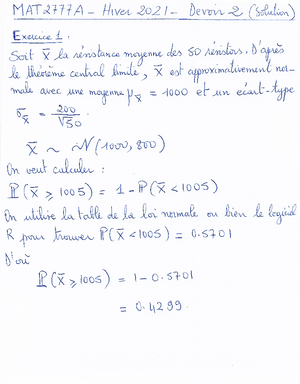 MAT2777A - Hiver 2021 - Devoir 2 (Solution)
Exercice 1 :
Soit X̄ la résistance moyenne des 50 résistors. D'après
le théorème central limite, X̄ est approximativement nor-
male avec une moyenne μ_X̄ = 1000 et un écart-type
σ_X̄ = 200/√50
X̄ ~ N(1000, 800)
On veut calculer :
P(X̄ ⩾ 1005) = 1 - P(X̄ < 1005)
On utilise la table de la loi normale ou bien le logiciel
R pour trouver P(X̄ < 1005) = 0.5701
D'où
P(X̄ ⩾ 1005) = 1 - 0.5701
= 0.4299.